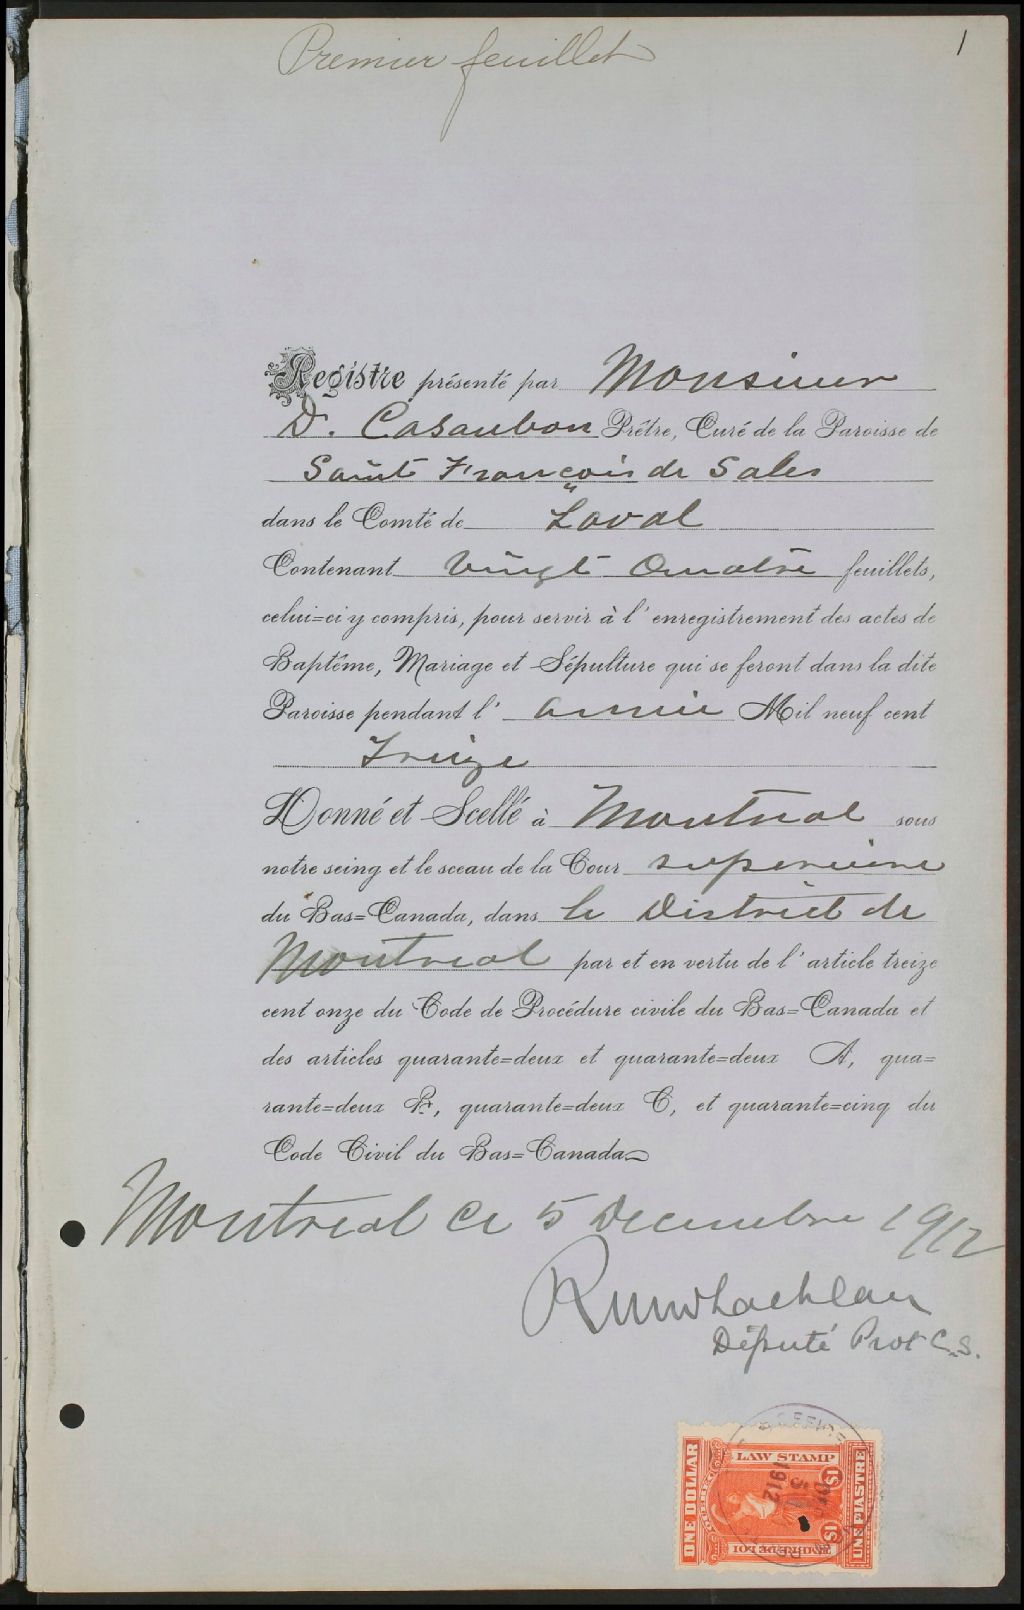 Premier feuillet
1
Registre présenté par Monsieur
D. Casaubon Prêtre, Curé de la Paroisse de
Saint François de Sales
dans le Comté de Laval
Contenant Vingt Quatre feuillets,
celui=ci y compris, pour servir à l'enregistrement des actes de
Baptême, Mariage et Sépulture qui se feront dans la dite
Paroisse pendant l'année Mil neuf cent
Treize
Donné et Scellé à Montreal sous
notre seing et le sceau de la Cour superieure
du Bas=Canada, dans le District de
Montreal par et en vertu de l'article treize
cent onze du Code de Procédure civile du Bas=Canada et
des articles quarante=deux et quarante=deux A, qua=
rante=deux B, quarante=deux C, et quarante=cinq du
Code Civil du Bas=Canada
Montreal ce 5 Decembre 1912
Député Prot C.S.
ONE DOLLAR
LAW STAMP
$1
QUEBEC
DEC 5 1912
$1
TIMBRE DE LOI
UNE PIASTRE